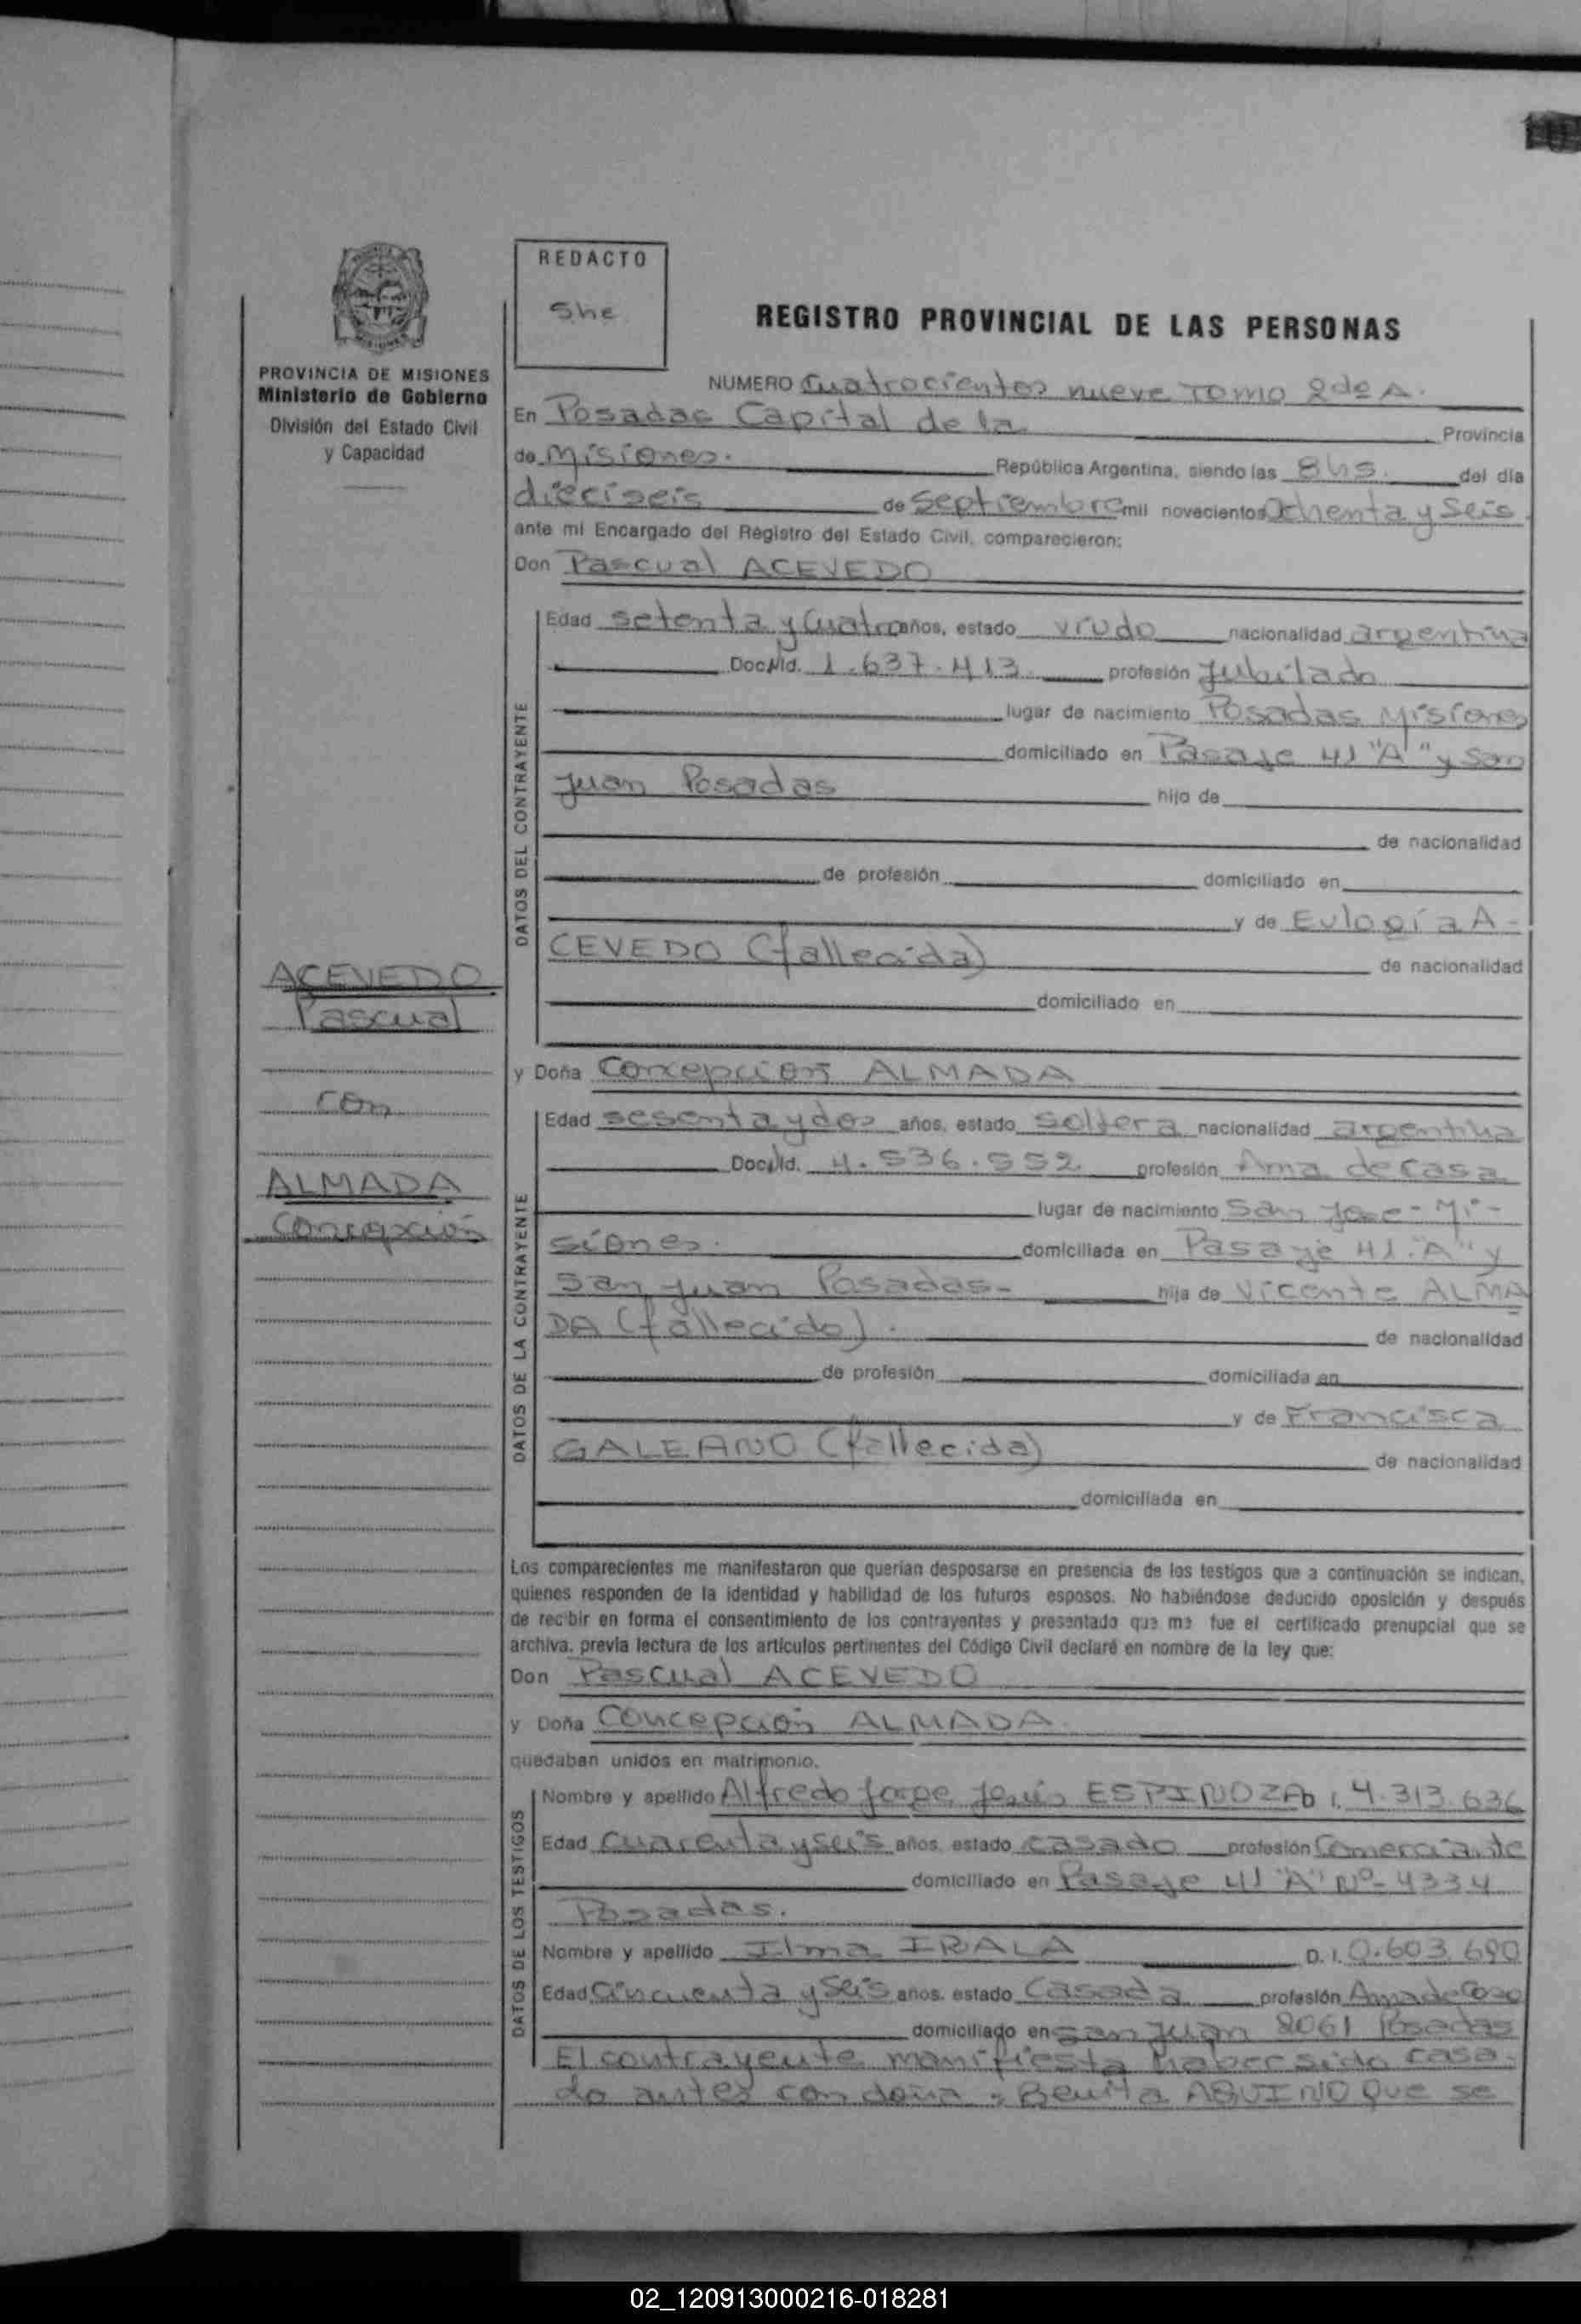 REDACTO
She
REGISTRO PROVINCIAL DE LAS PERSONAS
PROVINCIA DE MISIONES
Ministerio de Gobierno
División del Estado Civil
y Capacidad
NUMERO Cuatrocientos nueve Tomo 2do A.
En Posadas Capital de la Provincia
de Misiones. República Argentina, siendo las 8hs. del día
dieciseis de Septiembre mil novecientos Ochenta y Seis
ante mi Encargado del Registro del Estado Civil, comparecieron:
Don Pascual ACEVEDO
DATOS DEL CONTRAYENTE
Edad setenta y Cuatro años, estado viudo nacionalidad argentina
Doc.Nld. 1.637.413 profesión Jubilado
lugar de nacimiento Posadas Misiones
domiciliado en Pasaje 41 "A" y San
Juan Posadas hijo de
de nacionalidad
de profesión domiciliado en
y de Eulogia A-
CEVEDO (fallecida) de nacionalidad
domiciliado en
ACEVEDO
Pascual
con
ALMADA
Concepción
y Doña Concepción ALMADA
DATOS DE LA CONTRAYENTE
Edad sesenta y dos años, estado Soltera nacionalidad argentina
Doc.Nld. 4.536.552 profesión Ama de casa
lugar de nacimiento San Jose - Mi-
siones. domiciliada en Pasaje 41 "A" y
San Juan Posadas- hija de Vicente ALMA
DA (fallecido). de nacionalidad
de profesión domiciliada en
y de Francisca
GALEANO (fallecida) de nacionalidad
domiciliada en
Los comparecientes me manifestaron que querían desposarse en presencia de los testigos que a continuación se indican,
quienes responden de la identidad y habilidad de los futuros esposos. No habiéndose deducido oposición y después
de recibir en forma el consentimiento de los contrayentes y presentado que me fue el certificado prenupcial que se
archiva, previa lectura de los artículos pertinentes del Código Civil declaré en nombre de la ley que:
Don Pascual ACEVEDO
y Doña Concepción ALMADA
quedaban unidos en matrimonio.
DATOS DE LOS TESTIGOS
Nombre y apellido Alfredo Jorge Jesús ESPINOZA D.I. 4.313.636
Edad Cuarenta y seis años, estado casado profesión Comerciante
domiciliado en Pasaje 41 "A" Nº- 4334
Posadas.
Nombre y apellido Ilma IRALA D.I. 0.603.690
Edad Cincuenta y Seis años, estado Casada profesión Ama de Casa
domiciliado en San Juan 2061 Posadas
El contrayente manifiesta haber sido casa-
do antes con doña: Benita AQUINO Que se
02_120913000216-018281